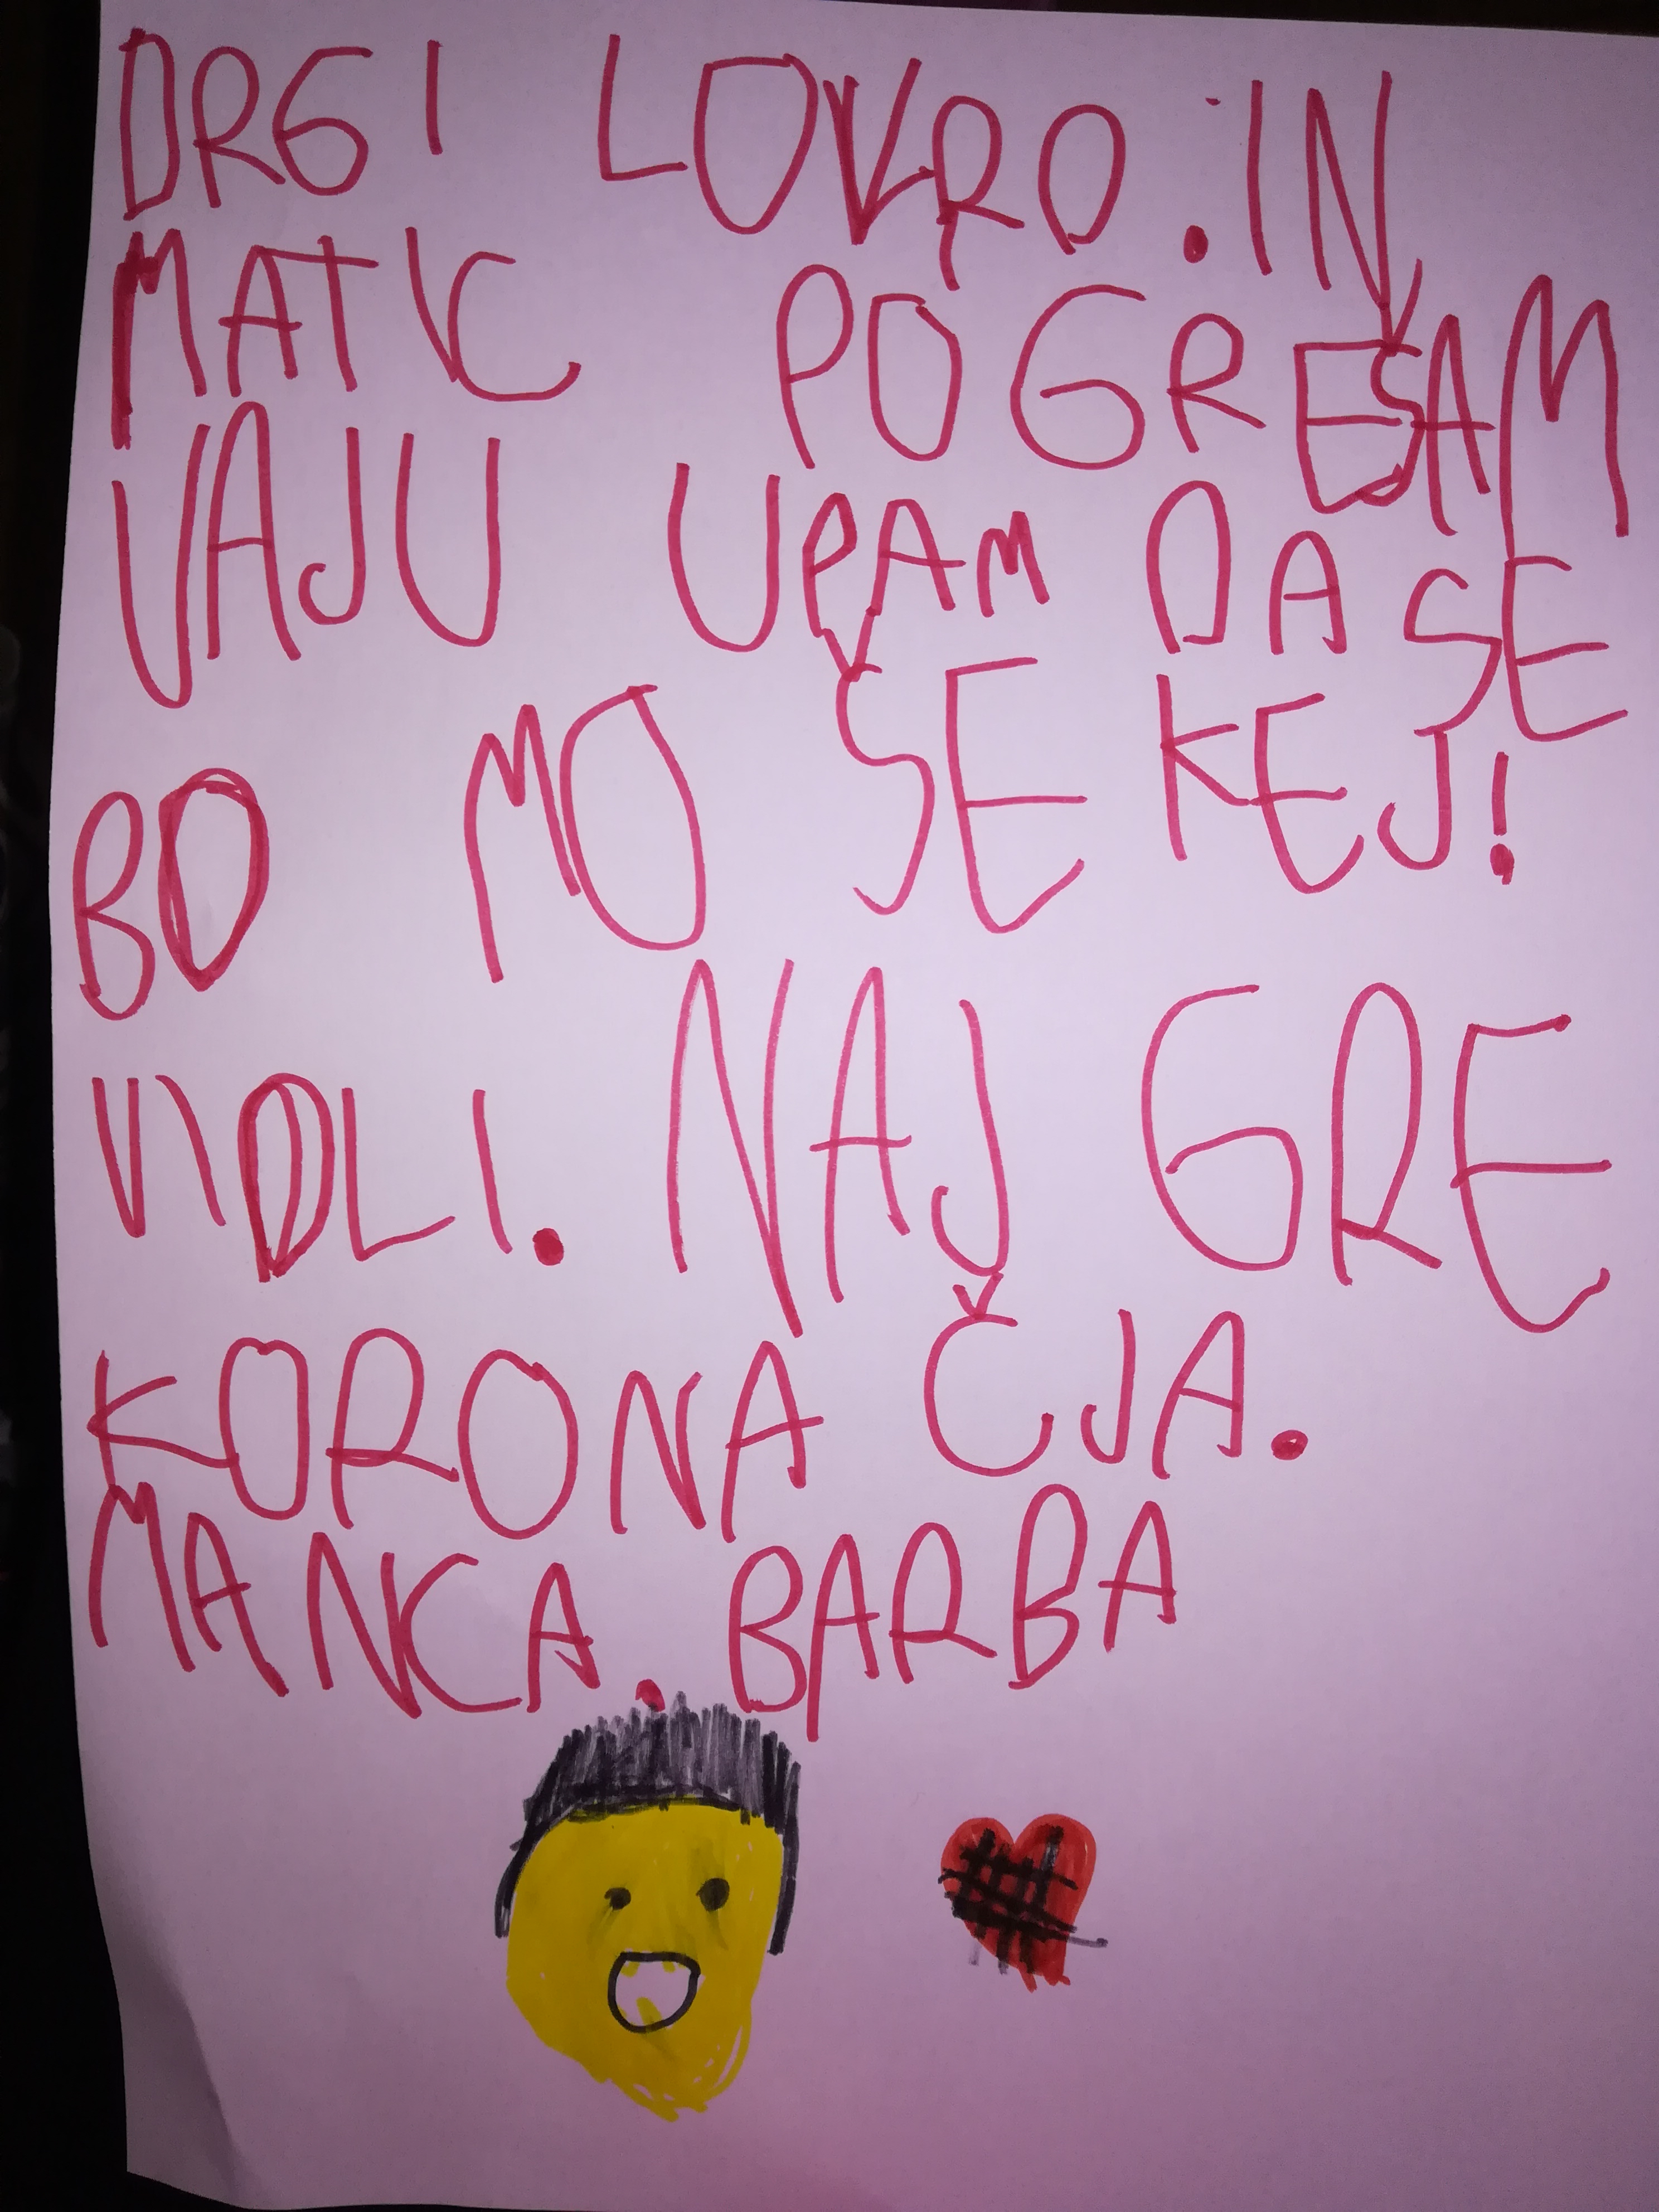 DRGI LOVRO. IN
MATIC POGREŠAM
VAJU UPAM DA SE
BO MO ŠE KEJ!
VIDLI. NAJ GRE
KORONA ČJA.
MANCA. BARBA